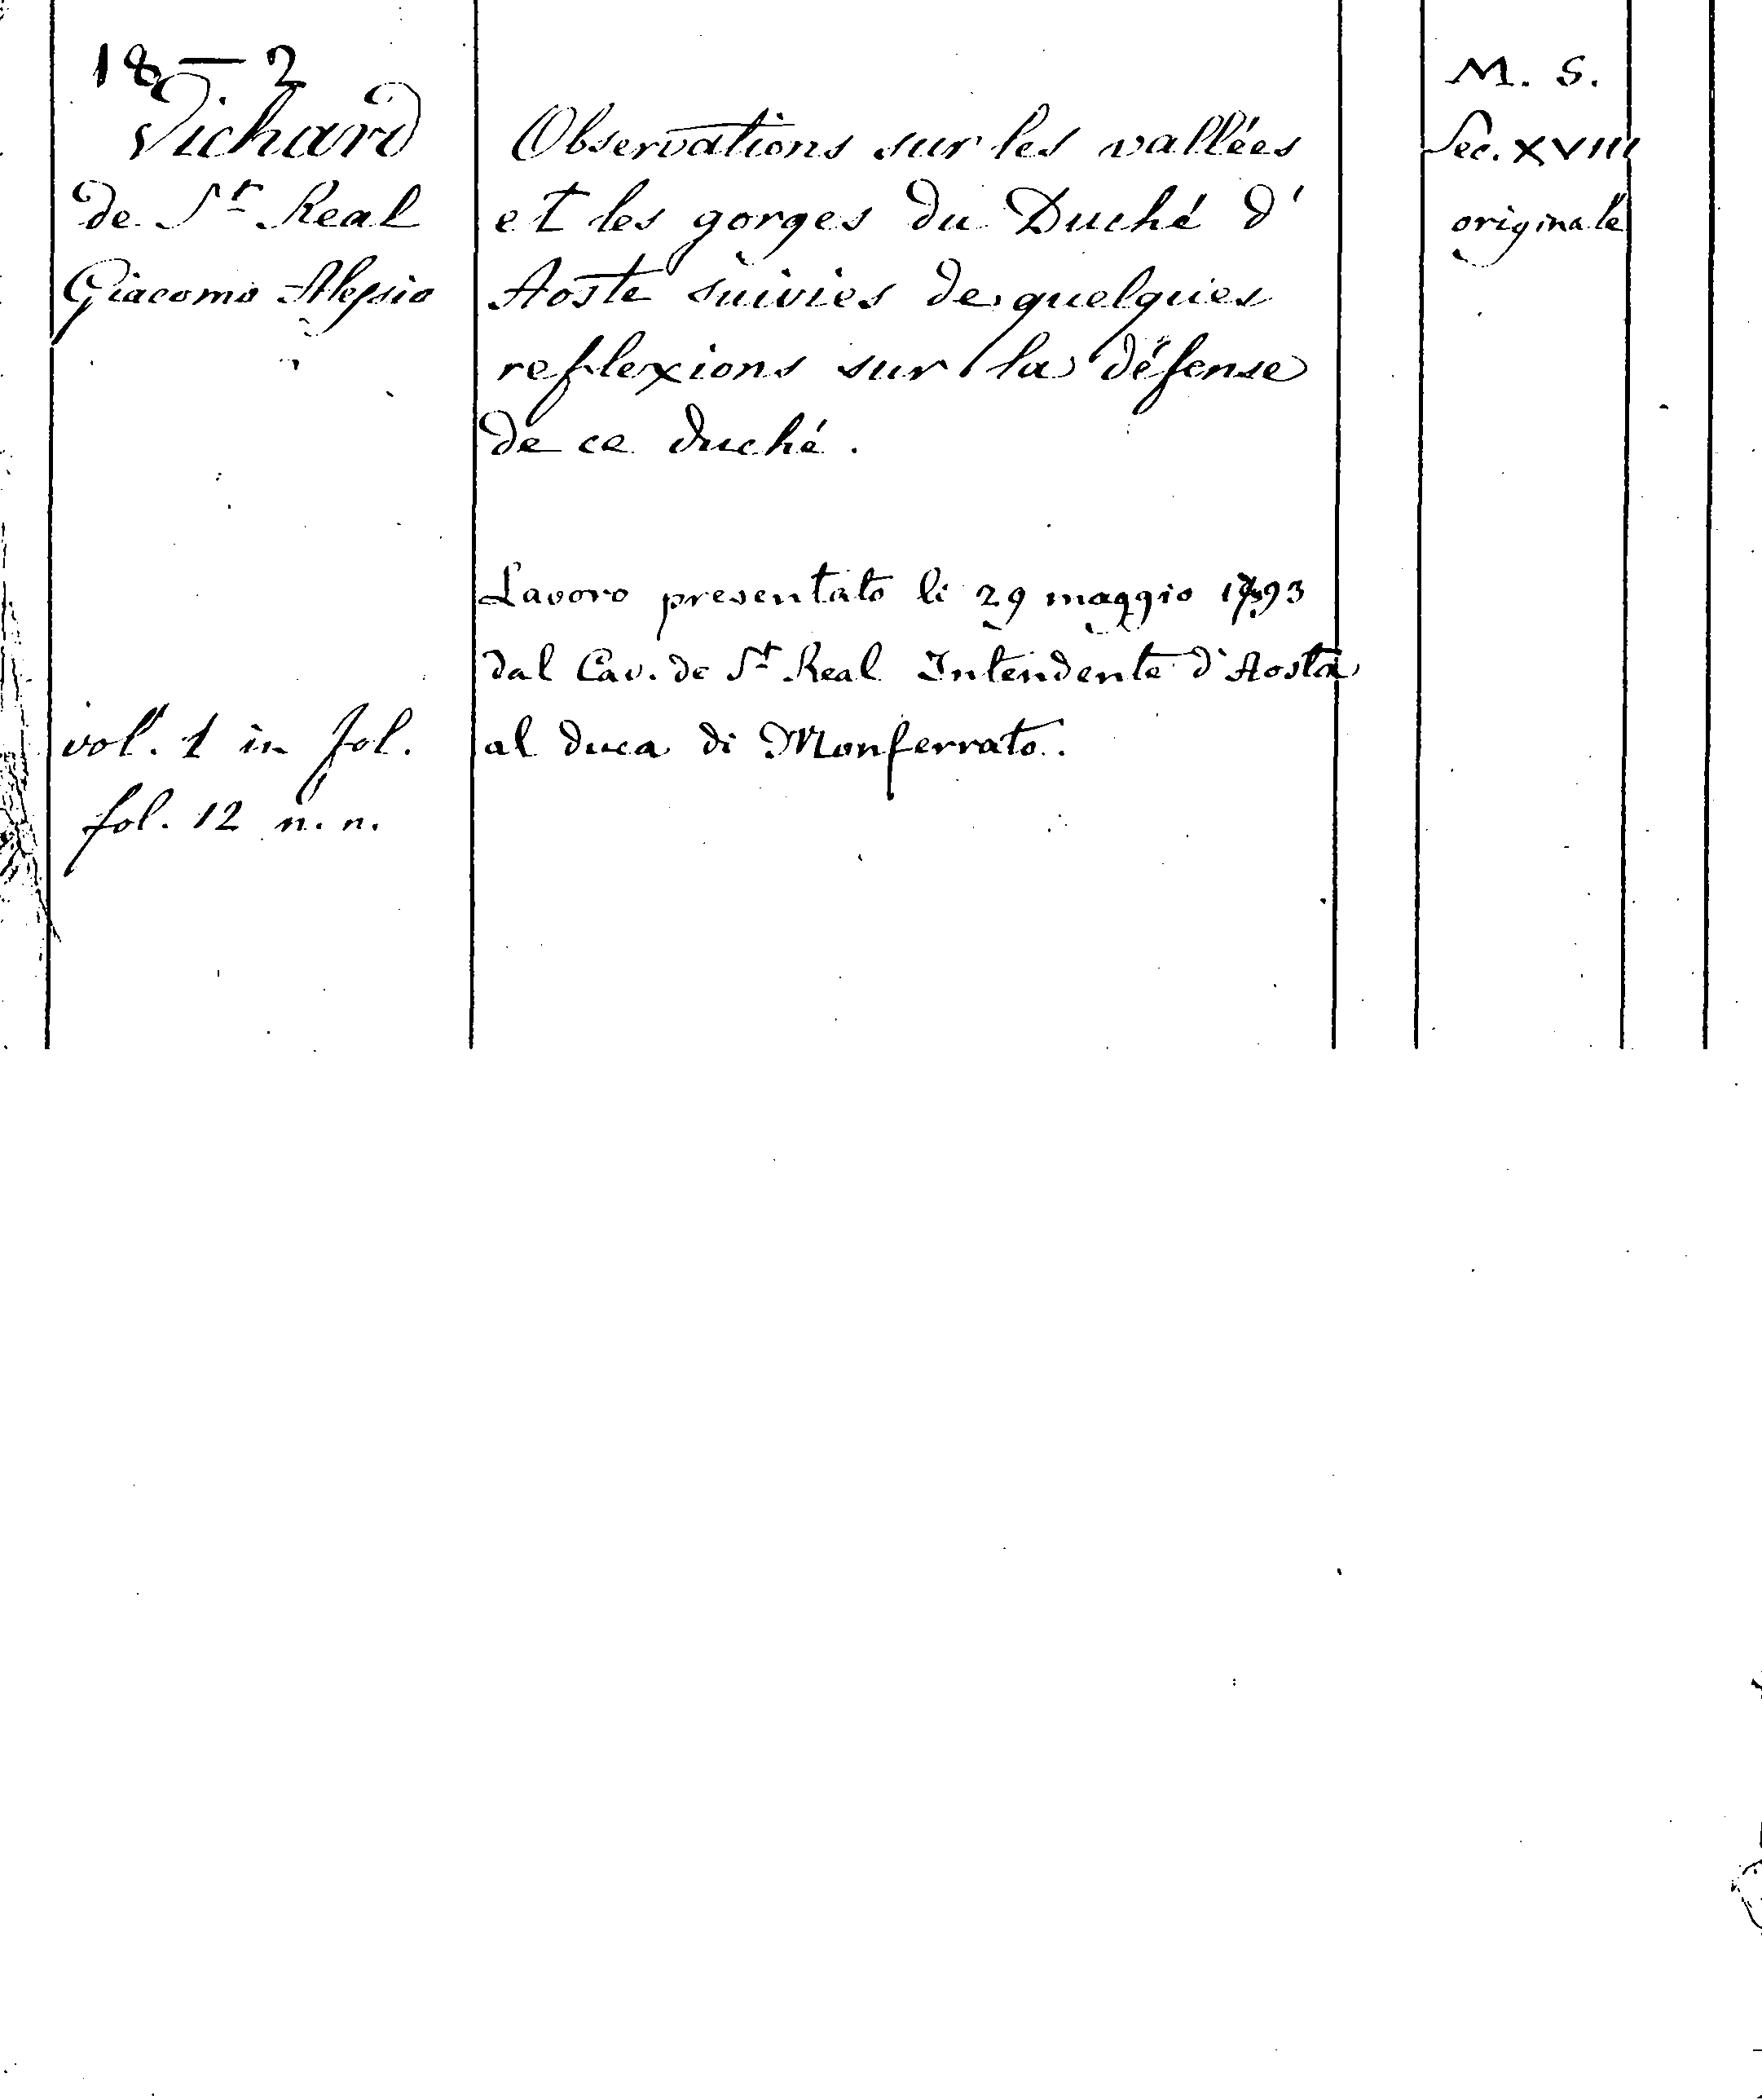 18 — 2
Vichard
de St. Real
Giacomo Alessio
vol. 1 in fol.
fol. 12 n. n.
Observations sur les vallées
et les gorges du Duché d'
Aoste suivies de quelques
reflexions sur la défense
de ce duché.
Lavoro presentato li 29 maggio 1793
dal Cav. de St. Real Intendente d'Aosta
al duca di Monferrato.
M. S.
Sec. XVIII
originale